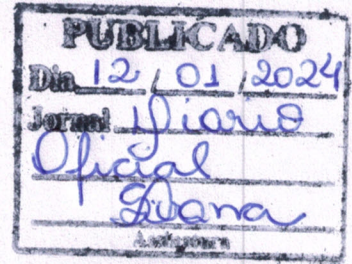 PUBLICADO
Dia 12 / 01 / 2024
Jornal Diario
Oficial
Assinatura